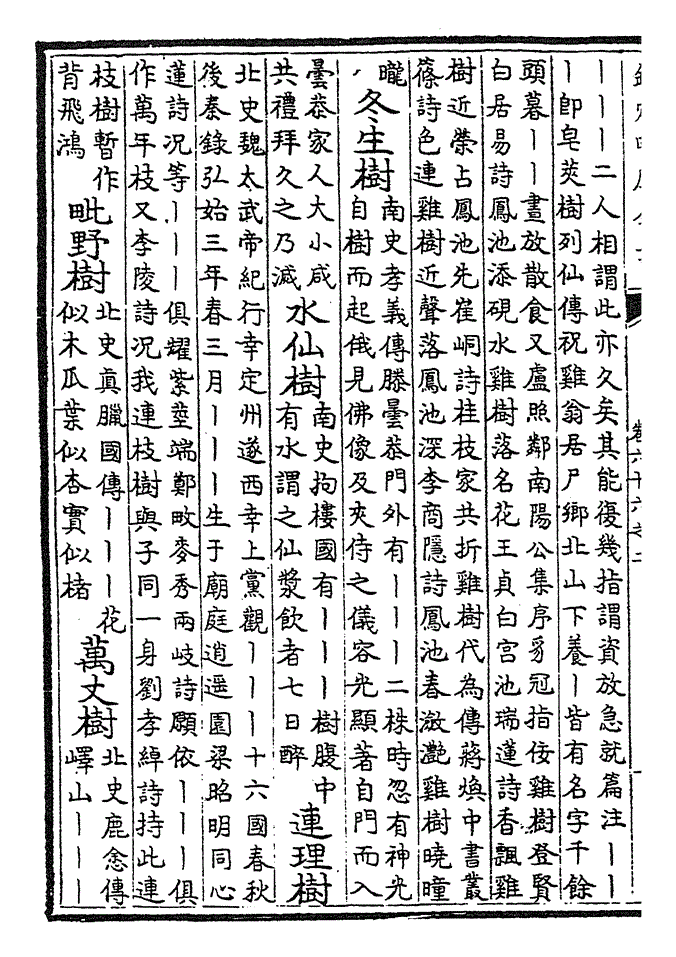 丨丨丨二人相謂此亦久矣其能復幾指謂資放急就篇注丨丨
丨卽皂莢樹列仙傳祝雞翁居尸鄉北山下養丨皆有名字千餘
頭暮丨丨晝放散食又盧照鄰南陽公集序豸冠指佞雞樹登賢
白居易詩鳳池添硯水雞樹落名花王貞白宮池瑞蓮詩香飄雞
樹近榮占鳳池先崔峒詩桂枝家共折雞樹代為傳蔣煥中書叢
篠詩色連雞樹近聲落鳳池深李商隱詩鳳池春瀲灩雞樹曉曈
曨
冬生樹
南史孝義傳滕曇恭門外有丨丨丨二株時忽有神光
自樹而起俄見佛像及夾侍之儀容光顯著自門而入
曇恭家人大小咸
共禮拜久之乃滅
水仙樹
南史拘樓國有丨丨丨樹腹中
有水謂之仙漿飲者七日醉
連理樹
北史魏太武帝紀行幸定州遂西幸上黨觀丨丨丨十六國春秋
後秦錄弘始三年春三月丨丨丨生于廟庭逍遥園梁昭明同心
蓮詩况等丨丨丨俱耀紫莖端鄭畋麥秀兩岐詩願依丨丨丨俱
作萬年枝又李陵詩况我連枝樹與子同一身劉孝綽詩持此連
枝樹暫作
背飛鴻
毗野樹
北史真臘國傳丨丨丨花
似木瓜葉似杏實似楮
萬丈樹
北史鹿悆傳
嶧山丨丨丨